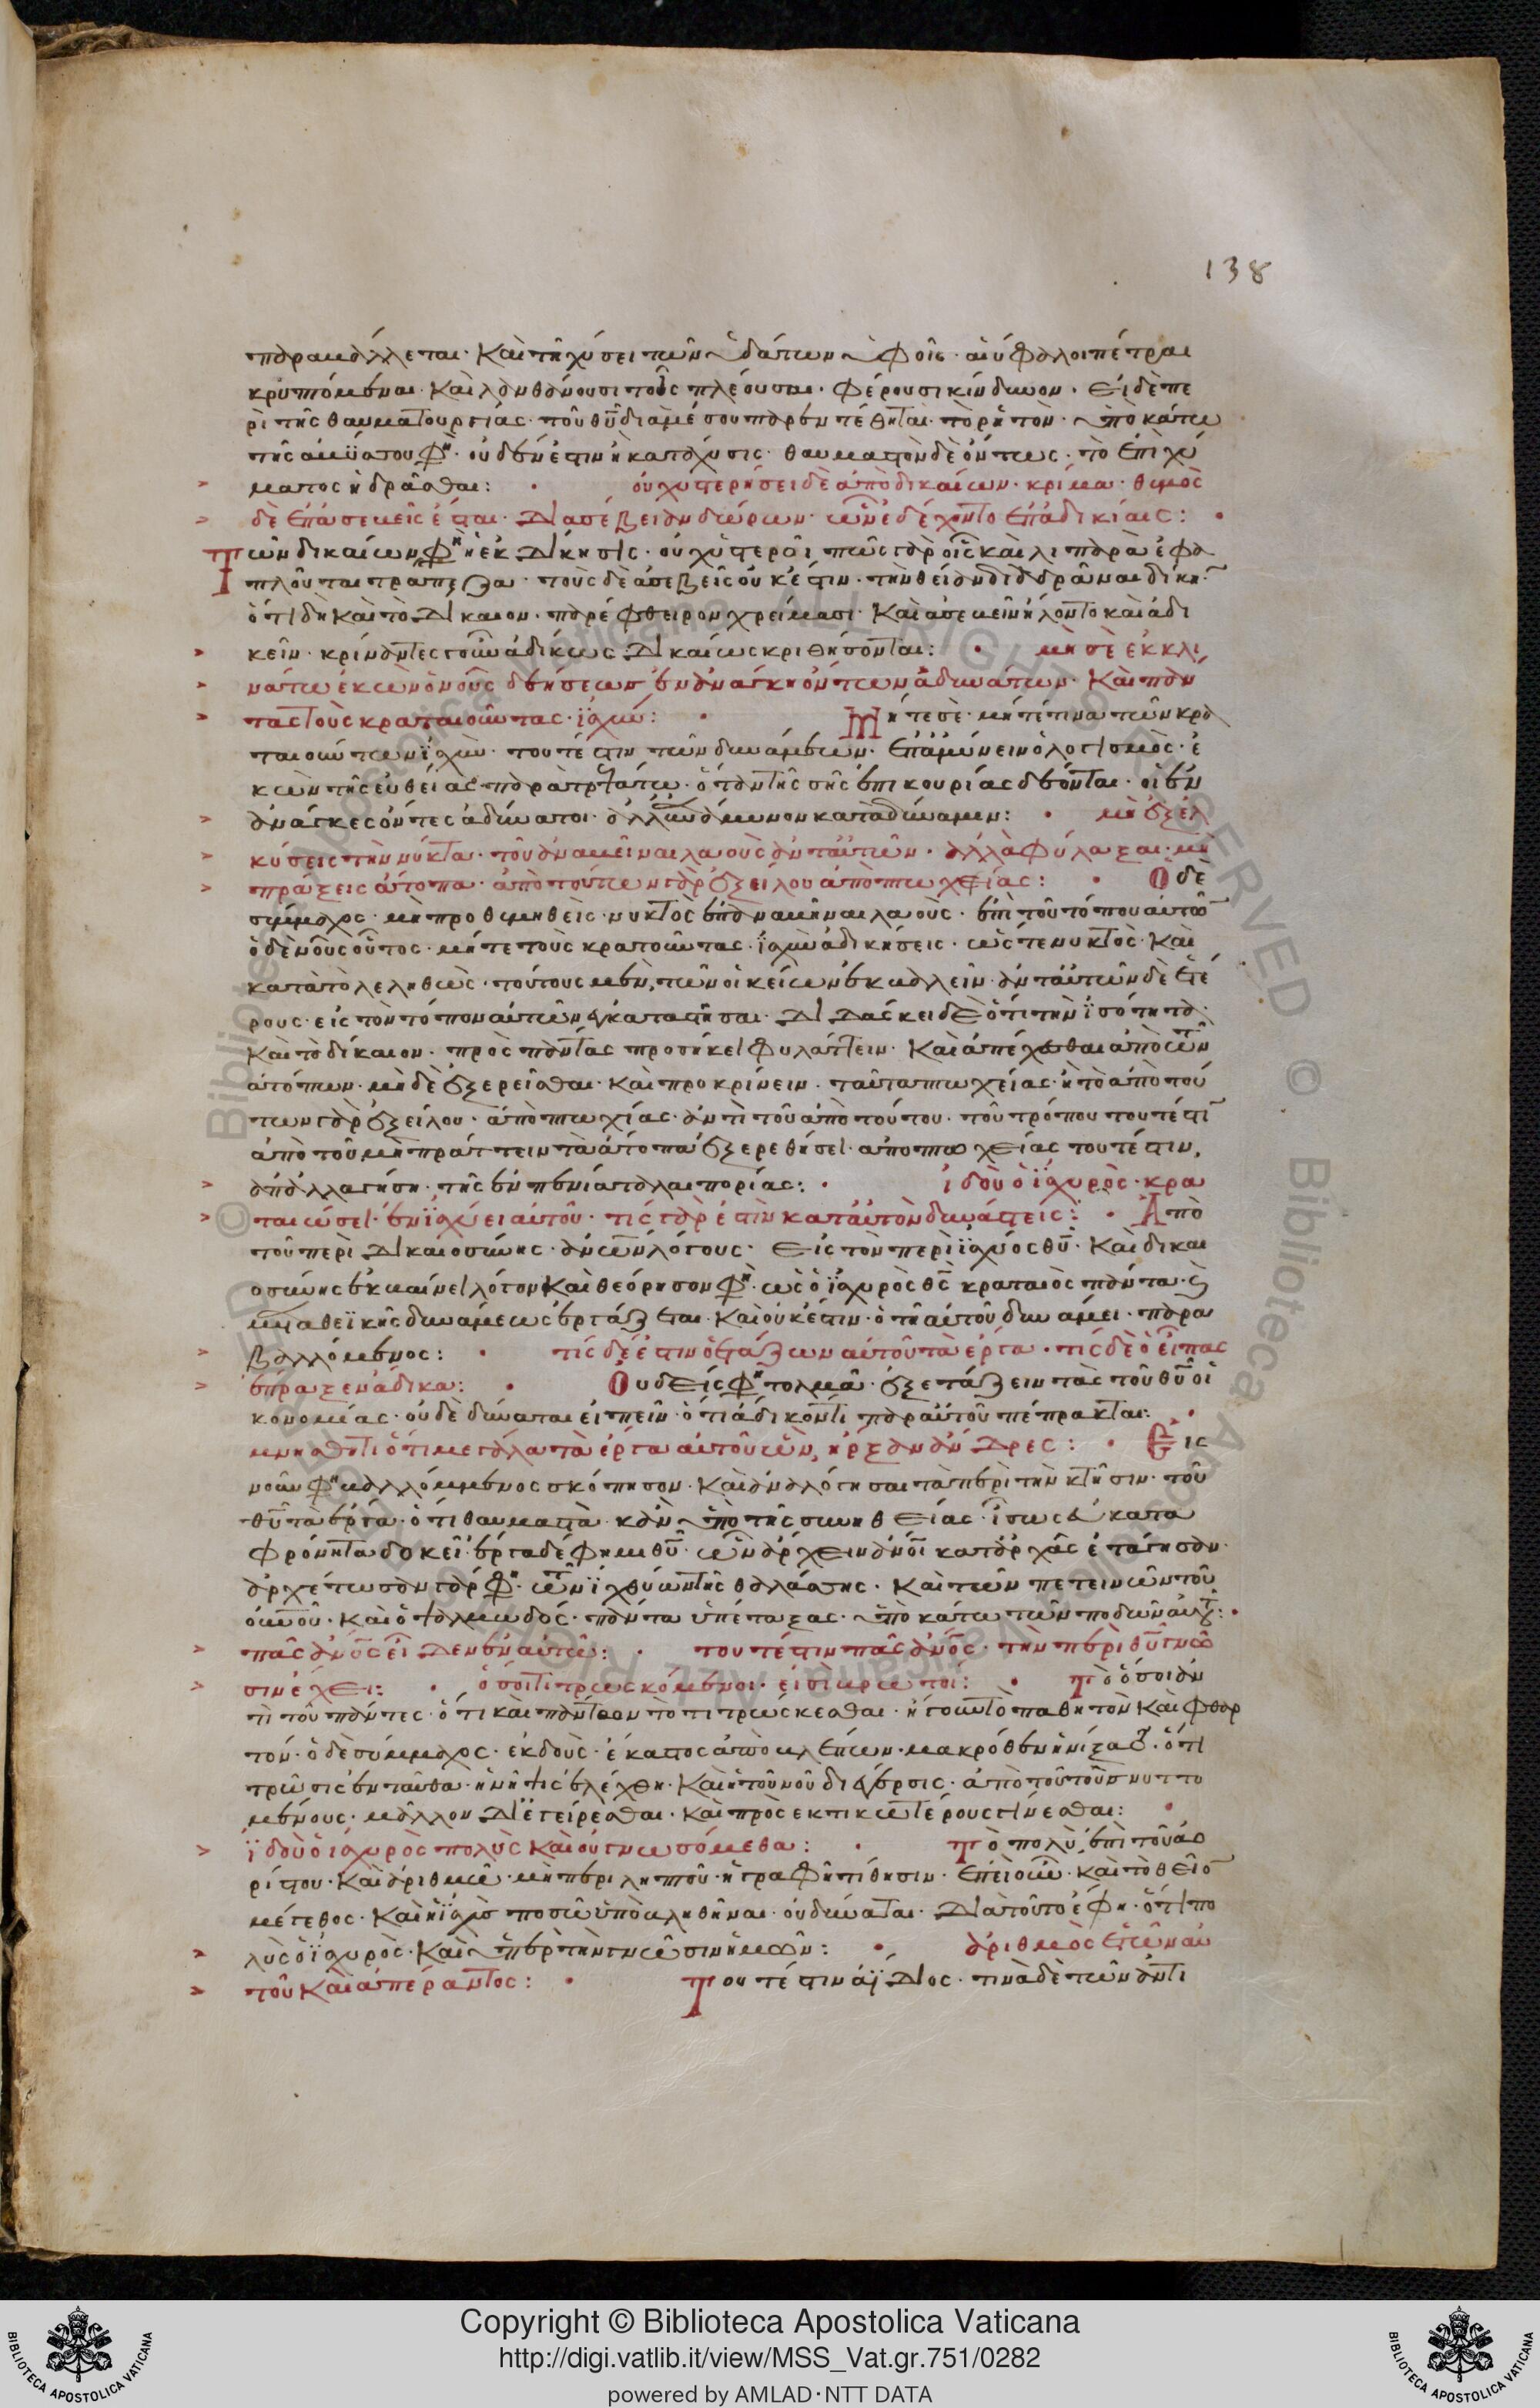 138
παραβάλλεται· καὶ τῆ χύσει τῶν ὑδάτων ἐφ οἷς· αἱ ὕφαλοι πέτραι
κρυπτόμεναι· καὶ λανθάνουσι τοὺς πλέουσι· φέρουσι κίνδυνον· εἰ δὲ πε
ρὶ τῆς θαυματουργίας· τοῦ θῦ διαμέσου παρεντέθηται· τὸ ῥητὸν· ὑποκάτω
τῆς ἀμύατου φη· οὐδὲν ἐστιν ἡ κατάχυσις· θαυμαστὸν δὲ ὄντως· τὸ ἐπὶ χύ
ματος ἡδρᾶσθαι: οὐχ ὑστερήσει δὲ ἀπὸ δικαίων· κρίμα· θυμὸς
δὲ ἐπ ἀσεβεῖς ἔσται· δι ἀσέβειαν δώρων· ὧν ἐδέχοντο ἐπ ἀδικίαις:
Τῶν δικαίων φη ἡ ἐκδίκησις· οὐχ ὑστερεῖ πῶς γὰρ οἷς καὶ λι παρὰ ἐφα
πλοῦται τράπεζα· τοὺς δὲ ἀσεβεῖς οὐκ ἔστιν· τὴν θείαν διαδρᾶναι δίκη
ὅτι δὴ καὶ τὸ δίκαιον· παρέφθειρον χρείμασι· καὶ ἀσεβεῖν ἥλοντο καὶ ἀδι
κεῖν· κρίναντες γοῦν ἀδίκως· δικαίως κριθήσονται: μὴ σὲ ἐκκλι
νάτω ἑκὼν ὁ νοῦς δεήσεων ἐν ἀνάγκη ὄντων ἀδυνάτων· καὶ πάν
τας τοὺς κραταιοῦντας· ἰσχύν: Μήτε σὲ· μήτέ τινα τῶν κρα
ταιούντων ἰσχὺν· τουτέστιν τῶν δυναμένων· ἐπαμύνειν ὁ λογισμὸς· ἑ
κὼν τῆς εὐθείας παρατρεψάτω· ὅταν τῆς σῆς ἐπικουρίας δέονται· οἱ ἐν
ἀνάγκες ὄντες ἀδύνατοι· κατὰ δύναμιν: μὴ ἐξελ
κύσεις τὴν νύκτα· τοῦ ἀναβῆναι λαοὺς ἀντ αὐτῶν· ἀλλὰ φύλαξαι· μὴ
πράξεις ἄτοπα· ἀπὸ τούτων γὰρ ἐξείλου ἀπὸ πτωχείας: Ὁ δὲ
σύμμαχος· μὴ προθυμηθεὶς· νυκτὸς ἐπαναβῆναι λαοὺς· ἐπὶ τοῦ τόπου αὐτῶ
ὁ δὲ νοῦς οὗτος· μήτε τοὺς κρατοῦντας· ἰσχὺν ἀδικήσεις· ὥς τε νυκτὸς· καὶ
κατὰ τὸ λεληθὼς· τούτους μὲν, τῶν οἰκείων ἐκβαλλεῖν· ἀντ αὐτῶν δὲ ἑτέ
ρους· εἰς τὸν τόπον αὐτῶν ἐγκαταστῆσαι· διδάσκει δὲ ὅτι τὴν ἰσότητα
καὶ τὸ δίκαιον· πρὸς πάντας προσήκει φυλάττειν· καὶ ἀπέχεσθαι ἀπὸ τῶν
ἀτόπων· μὴ δὲ ἐξερεῖσθαι· καὶ προκρίνειν· ταῦτα πτωχείας· ἢ τὸ ἀπὸ τού
των γὰρ ἐξείλου· ἀπὸ πτωχίας· ἀντὶ τοῦ ἀπὸ τούτου· τοῦ τρόπου τουτέστι
ἀπὸ τοῦ μὴ πράττειν τὰ ἄτοπα ἐξερεθήσει· ἀπὸ πτωχείας τουτέστιν,
ἀπαλλαγήση· τῆς ἐν πενία ταλαιπορίας: ἰδοὺ ὁ ἰσχυρὸς· κρα
ταιώσει· ἐν ἰσχύει αὐτοῦ· τίς γὰρ ἐστὶν κατ αὐτὸν δυνάστεις: Ἀπὸ
τοῦ περὶ δικαιοσύνης· λόγους· εἰς τὸν περὶ ἰσχύος θῦ· καὶ δικαι
οσύνης ἐκβαίνει λόγον καὶ θεόρησον φη· ὡς ὁ ἰσχυρὸς θς κραταιὸς πάντα·
θεϊκῆς δυνάμεως ἐργάζεται· καὶ οὐκ ἔστιν· ὁ τῆ αὐτοῦ δυνάμει· παρα
βαλλόμενος: τίς δέ ἐστιν ὁ ἐτάζων αὐτοῦ τὰ ἔργα· τίς δὲ ὁ εἴπας
ἔπραξεν ἄδικα: Οὐδεὶς φη τολμᾶ· ἐξετάζειν τὰς τοῦ θῦ οἰ
κονομίας· οὐδὲ δύναται εἰπεῖν· ὅτι ἄδικόν τι παρ αὐτοῦ πέπρακται:
μνήσθητι ὅτι μεγάλα τὰ ἔργα αὐτοῦ ὧν, ἦρξαν ἄνδρες: Εἰς
νοῦν φη βαλλόμενος σκόπησον· καὶ ἀναλόγησαι τὰ περὶ τὴν κτῆσιν· τοῦ
θῦ τὰ ἔργα· ὅτι θαυμαστὰ κἂν ὑπὸ τῆς συνηθείας· ἴσως καταφρόνητα δοκεῖ·
φρόνητα δοκεῖ· ἔργα δέ φημι θῦ· ὧν ἄρχειν ἄνοι κατ ἀρχὰς ἐτάγησαν·
ἀρχέτωσαν γὰρ φη· τῶν ἰχθύων τῆς θαλάσσης· καὶ τῶν πετεινῶν τοῦ
οὐνοῦ· καὶ ὁ ψαλμωδός· πάντα ὑπέταξας· ὑπὸ κάτω τῶν ποδῶν αὐτοῦ:
πᾶς ἄνος εἶδεν ἐν αὐτῶ: τουτέστιν πᾶς ἄνος· τὴν περὶ θῦ γνῶ
σιν ἔχει: ὅσοι τιτρωσκόμενοι· εἰσὶ βροτοί: Τὸ ὅσοι ἀν
τὶ τοῦ πάντες· ὅτι καὶ πάντων τὸ τιτρώσκεσθαι· ἤγουν τὸ παθητὸν καὶ φθαρ
τόν· ὁ δὲ σύμμαχος· ἐκδοὺς· ἕκαστος ἀποβλέπων· μακρόθεν ὅτι
τρῶσις ἐνταῦθα· καὶ ἡ τοῦ νοῦ διέγερσις· ἀπὸ τοῦ τοὺς νυττο
μένους· μᾶλλον διεγείρεσθαι· καὶ πρὸς εκτικωτέρους γίνεσθαι:
ἰδοὺ ὁ ἰσχυρὸς πολὺς καὶ οὐ γνωσόμεθα: Τὸ πολὺ, ἐπὶ τοῦ ἀο
ρίστου· καὶ ἀριθμῶ· μὴ περιληπτοῦ· ἡ γραφὴ τίθησιν· ἐπεὶ οὖν· καὶ τὸ θεῖο
μέγεθος· καὶ ἡ ἰσχὺς ποσῶ ὑποβληθῆναι· οὐ δύναται· διὰ τοῦτο ἔφη· ὅτι πο
λὺς ὁ ἰσχυρὸς· καὶ ὑπὲρ τὴν γνῶσιν ἡμῶν: ἀριθμὸς ἐτῶν αὐ
τοῦ καὶ ἀπέραντος: Τουτέστιν ἀΐδιος· τινὰ δὲ τῶν ἀντι
Copyright © Biblioteca Apostolica Vaticana
http://digi.vatlib.it/view/MSS_Vat.gr.751/0282
powered by AMLAD·NTT DATA